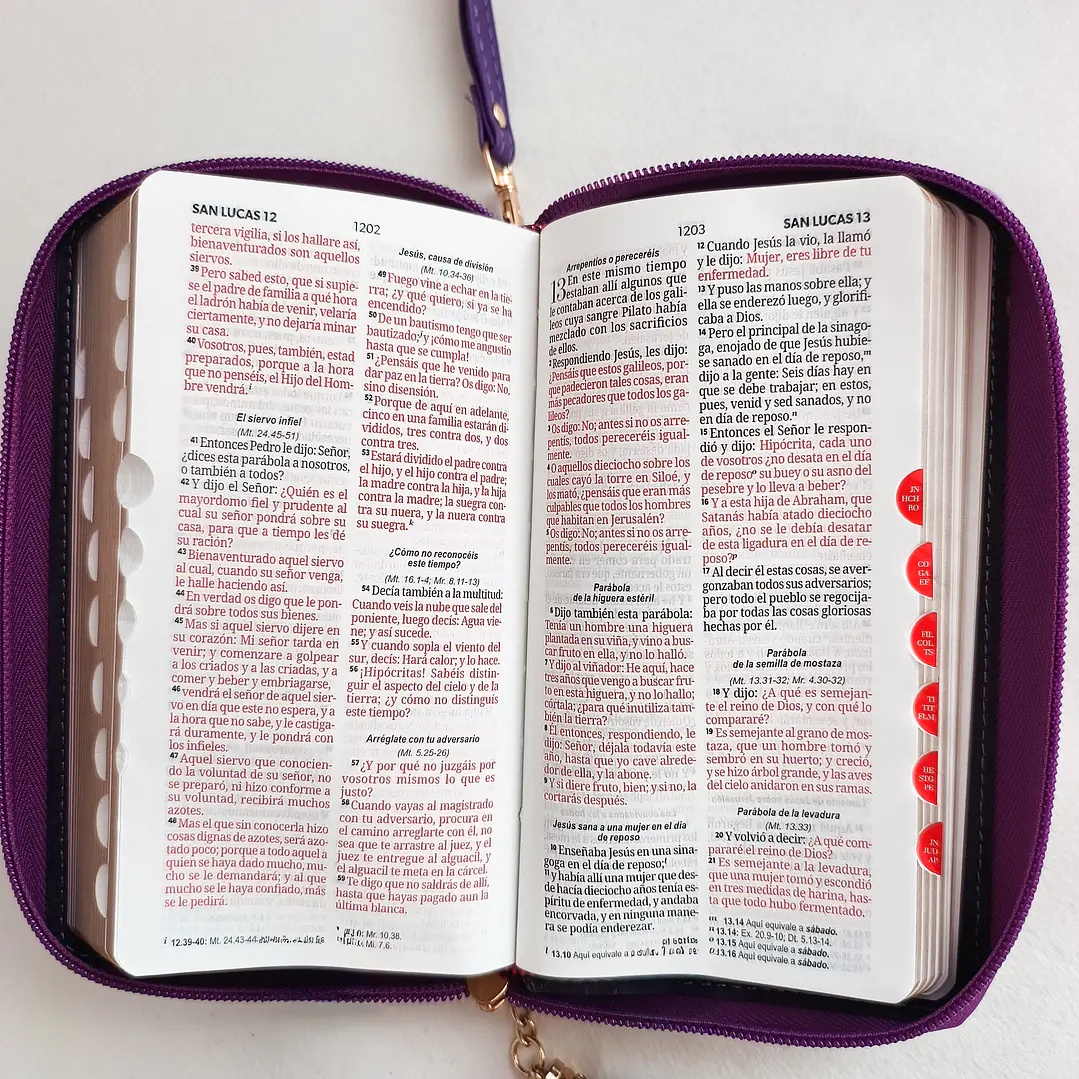 SAN LUCAS 12
1202
tercera vigilia, si los hallare así,
bienaventurados son aquellos
siervos.
39 Pero sabed esto, que si supie-
se el padre de familia a qué hora
el ladrón había de venir, velaría
ciertamente, y no dejaría minar
su casa.
40 Vosotros, pues, también, estad
preparados, porque a la hora
que no penséis, el Hijo del Hom-
bre vendrá.i
El siervo infiel
(Mt. 24.45-51)
41 Entonces Pedro le dijo: Señor,
¿dices esta parábola a nosotros,
o también a todos?
42 Y dijo el Señor: ¿Quién es el
mayordomo fiel y prudente al
cual su señor pondrá sobre su
casa, para que a tiempo les dé
su ración?
43 Bienaventurado aquel siervo
al cual, cuando su señor venga,
le halle haciendo así.
44 En verdad os digo que le pon-
drá sobre todos sus bienes.
45 Mas si aquel siervo dijere en
su corazón: Mi señor tarda en
venir; y comenzare a golpear
a los criados y a las criadas, y a
comer y beber y embriagarse,
46 vendrá el señor de aquel sier-
vo en día que este no espera, y a
la hora que no sabe, y le castiga-
rá duramente, y le pondrá con
los infieles.
47 Aquel siervo que conocien-
do la voluntad de su señor, no
se preparó, ni hizo conforme a
su voluntad, recibirá muchos
azotes.
48 Mas el que sin conocerla hizo
cosas dignas de azotes, será azo-
tado poco; porque a todo aquel a
quien se haya dado mucho, mu-
cho se le demandará; y al que
mucho se le haya confiado, más
se le pedirá.
i 12.39-40: Mt. 24.43-44
Jesús, causa de división
(Mt. 10.34-36)
49 Fuego vine a echar en la tie-
rra; ¿y qué quiero, si ya se ha
encendido?
50 De un bautismo tengo que ser
bautizado;j y ¡cómo me angustio
hasta que se cumpla!
51 ¿Pensáis que he venido para
dar paz en la tierra? Os digo: No,
sino disensión.
52 Porque de aquí en adelante,
cinco en una familia estarán di-
vididos, tres contra dos, y dos
contra tres.
53 Estará dividido el padre contra
el hijo, y el hijo contra el padre;
la madre contra la hija, y la hija
contra la madre; la suegra con-
tra su nuera, y la nuera contra
su suegra.k
¿Cómo no reconocéis
este tiempo?
(Mt. 16.1-4; Mr. 8.11-13)
54 Decía también a la multitud:
Cuando veis la nube que sale del
poniente, luego decís: Agua vie-
ne; y así sucede.
55 Y cuando sopla el viento del
sur, decís: Hará calor; y lo hace.
56 ¡Hipócritas! Sabéis distin-
guir el aspecto del cielo y de la
tierra; ¿y cómo no distinguís
este tiempo?
Arréglate con tu adversario
(Mt. 5.25-26)
57 ¿Y por qué no juzgáis por
vosotros mismos lo que es
justo?
58 Cuando vayas al magistrado
con tu adversario, procura en
el camino arreglarte con él, no
sea que te arrastre al juez, y el
juez te entregue al alguacil, y
el alguacil te meta en la cárcel.
59 Te digo que no saldrás de allí,
hasta que hayas pagado aun la
última blanca.
Mr. 10.38.
Mi. 7.6.
1203
SAN LUCAS 13
Arrepentíos o pereceréis
13 En este mismo tiempo
estaban allí algunos que
le contaban acerca de los gali-
leos cuya sangre Pilato había
mezclado con los sacrificios
de ellos.
2 Respondiendo Jesús, les dijo:
¿Pensáis que estos galileos, por-
que padecieron tales cosas, eran
más pecadores que todos los ga-
lileos?
3 Os digo: No; antes si no os arre-
pentís, todos pereceréis igual-
mente.
4 O aquellos dieciocho sobre los
cuales cayó la torre en Siloé, y
los mató, ¿pensáis que eran más
culpables que todos los hombres
que habitan en Jerusalén?
5 Os digo: No; antes si no os arre-
pentís, todos pereceréis igual-
mente.
Parábola
de la higuera estéril
6 Dijo también esta parábola:
Tenía un hombre una higuera
plantada en su viña, y vino a bus-
car fruto en ella, y no lo halló.
7 Y dijo al viñador: He aquí, hace
tres años que vengo a buscar fru-
to en esta higuera, y no lo hallo;
córtala; ¿para qué inutiliza tam-
bién la tierra?
8 Él entonces, respondiendo, le
dijo: Señor, déjala todavía este
año, hasta que yo cave alrede-
dor de ella, y la abone.
9 Y si diere fruto, bien; y si no, la
cortarás después.
Jesús sana a una mujer en el día
de reposo
10 Enseñaba Jesús en una sina-
goga en el día de reposo;l
11 y había allí una mujer que des-
de hacía dieciocho años tenía es-
píritu de enfermedad, y andaba
encorvada, y en ninguna mane-
ra se podía enderezar.
l 13.10 Aquí equivale a
12 Cuando Jesús la vio, la llamó
y le dijo: Mujer, eres libre de tu
enfermedad.
13 Y puso las manos sobre ella; y
ella se enderezó luego, y glorifi-
caba a Dios.
14 Pero el principal de la sinago-
ga, enojado de que Jesús hubie-
se sanado en el día de reposo,m
dijo a la gente: Seis días hay en
que se debe trabajar; en estos,
pues, venid y sed sanados, y no
en día de reposo.n
15 Entonces el Señor le respon-
dió y dijo: Hipócrita, cada uno
de vosotros ¿no desata en el día
de reposoo su buey o su asno del
pesebre y lo lleva a beber?
16 Y a esta hija de Abraham, que
Satanás había atado dieciocho
años, ¿no se le debía desatar
de esta ligadura en el día de re-
poso?p
17 Al decir él estas cosas, se aver-
gonzaban todos sus adversarios;
pero todo el pueblo se regocija-
ba por todas las cosas gloriosas
hechas por él.
Parábola
de la semilla de mostaza
(Mt. 13.31-32; Mr. 4.30-32)
18 Y dijo: ¿A qué es semejan-
te el reino de Dios, y con qué lo
compararé?
19 Es semejante al grano de mos-
taza, que un hombre tomó y
sembró en su huerto; y creció,
y se hizo árbol grande, y las aves
del cielo anidaron en sus ramas.
Parábola de la levadura
(Mt. 13.33)
20 Y volvió a decir: ¿A qué com-
pararé el reino de Dios?
21 Es semejante a la levadura,
que una mujer tomó y escondió
en tres medidas de harina, has-
ta que todo hubo fermentado.
m 13.14 Aquí equivale a sábado.
n 13.14: Ex. 20.9-10; Dt. 5.13-14.
o 13.15 Aquí equivale a sábado.
p 13.16 Aquí equivale a sábado.
JN
HCH
RO
CO
GA
EF
FIL
COL
TS
TI
TIT
FLM
HE
STG
PE
JN
JUD
AP